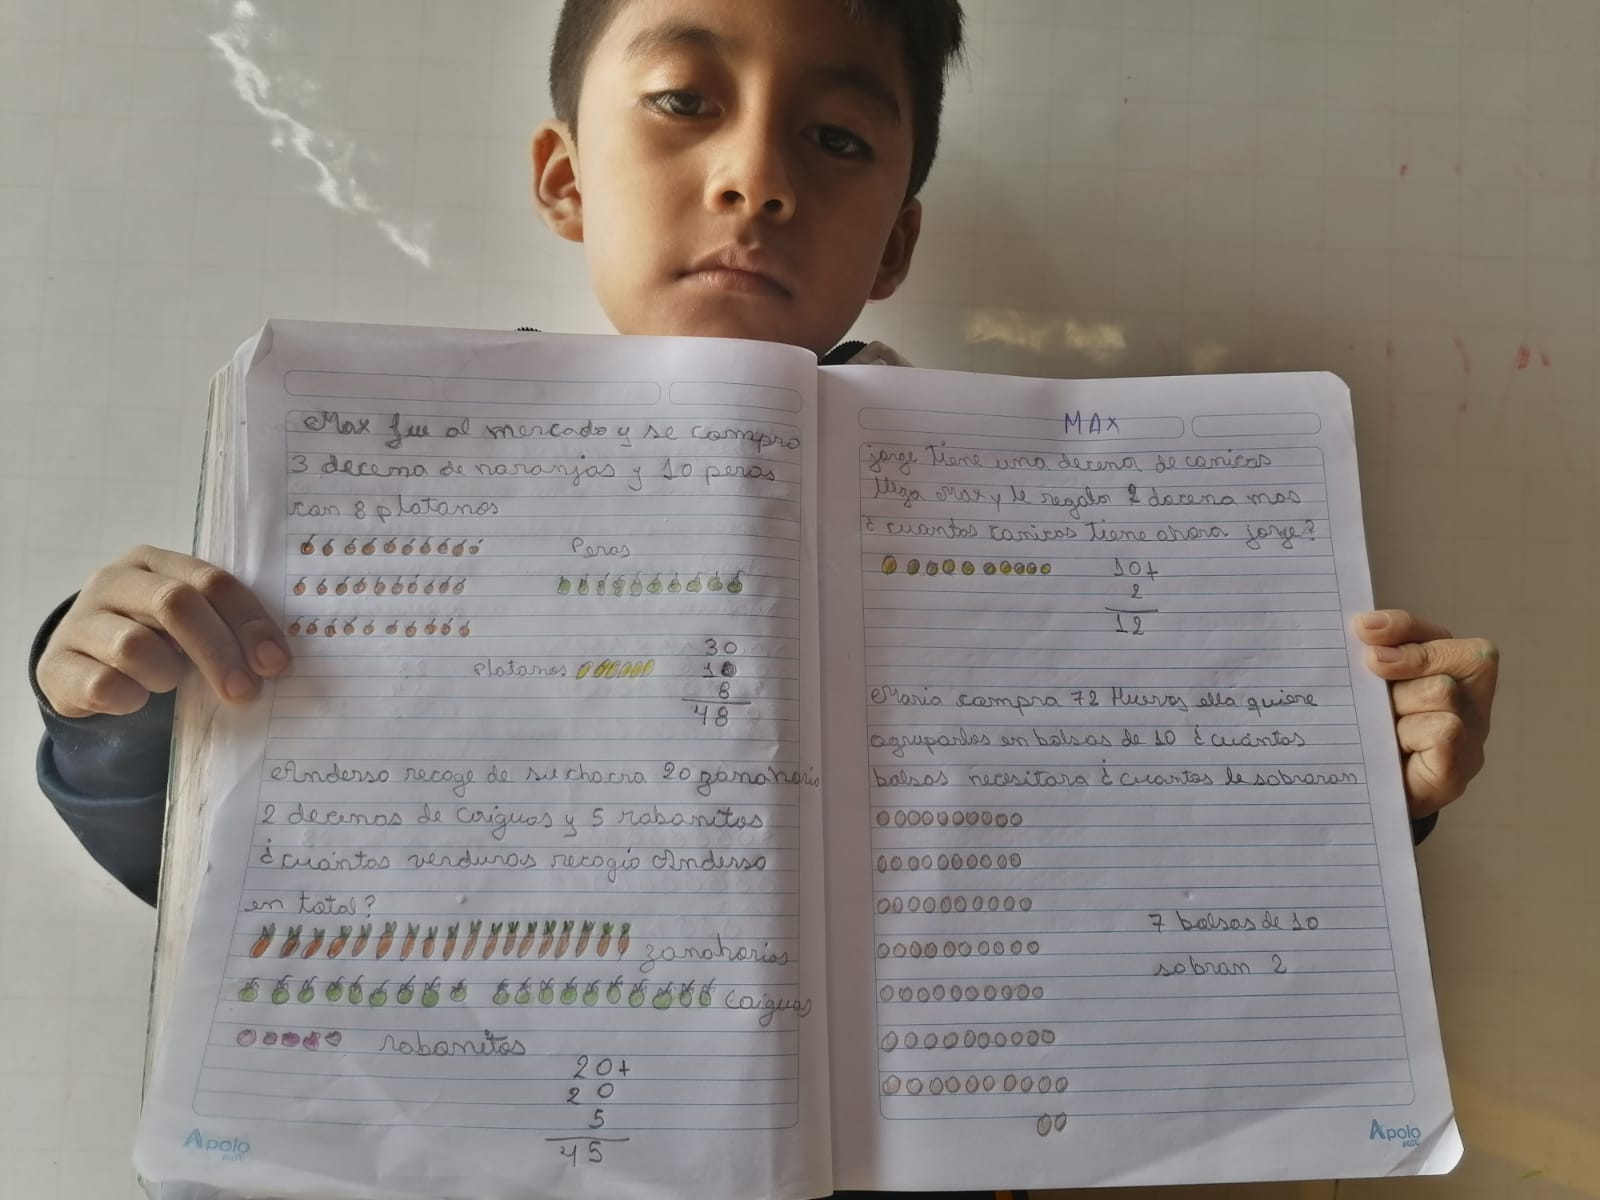 Max fue al mercado y se compro
3 decema de naranjas y 10 peras
con 8 platanos
Peras
Platanos
30
10
8
48
Anderso recoge de su chacra 20 zanahorio
2 decenas de caiguas y 5 rabanitos
¿cuántas verduras recogio Anderso
en total?
zanahorias
caiguas
rabanitos
20+
20
5
45
Apolo
MAx
jorge tiene una decena de canicas
llega Max y le regala 2 docena mas
¿cuantas canicas tiene ahora jorge?
10+
2
12
Maria compra 72 Huevos ella quiere
agruparlos en bolsas de 10 ¿cuántas
bolsas necesitara ¿cuantos le sobraran
7 bolsas de 10
sobran 2
Apolo